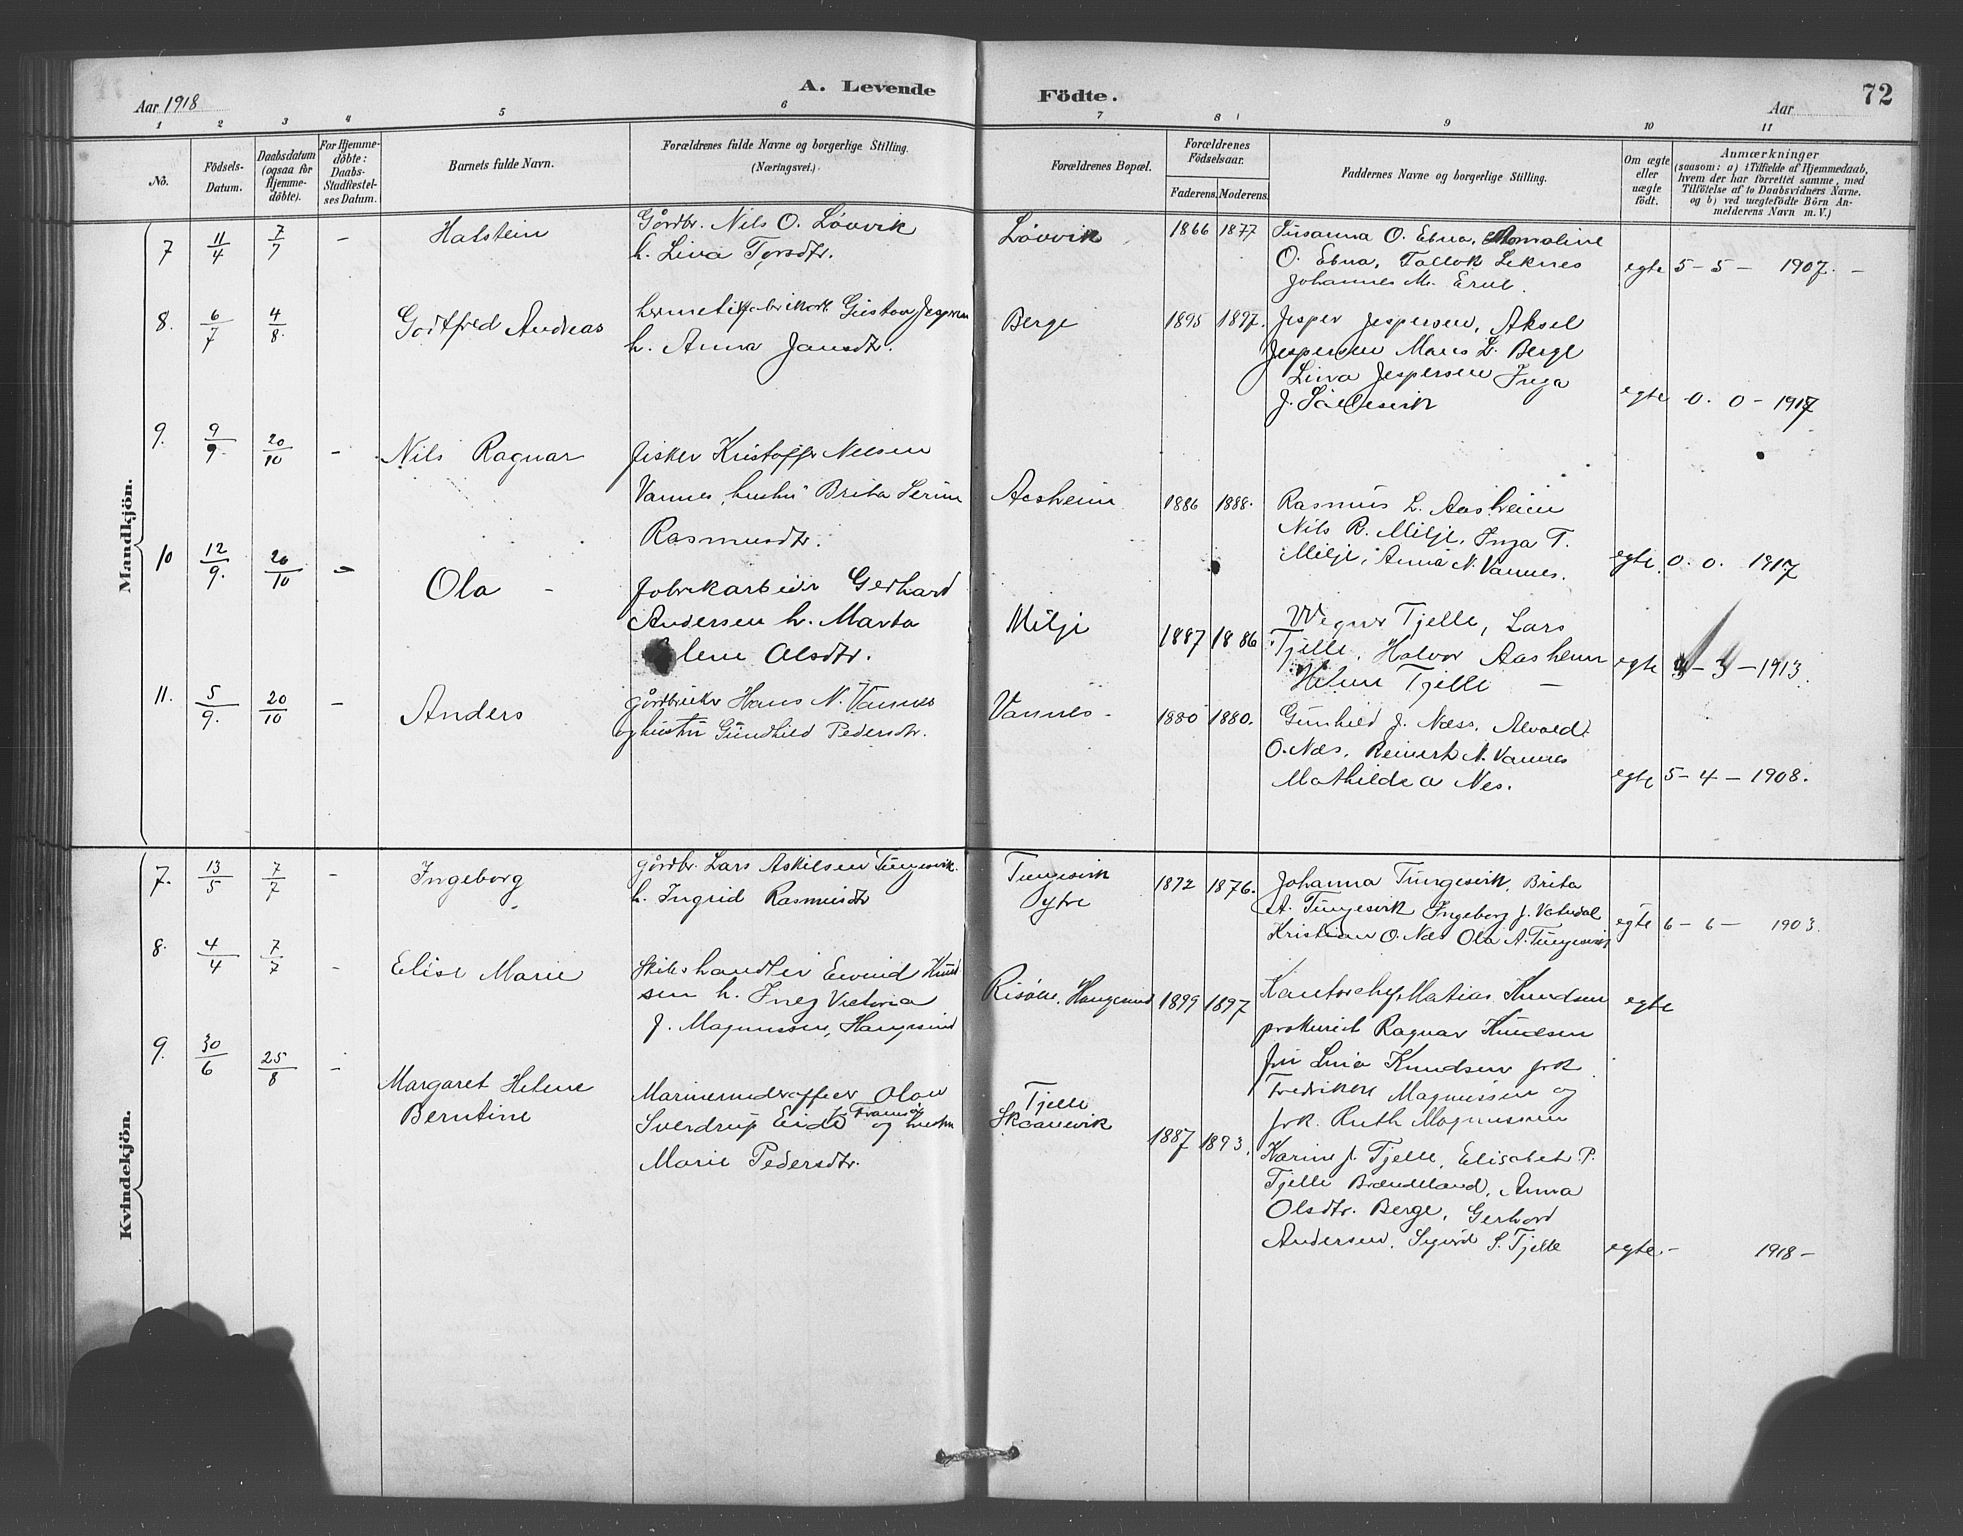 A. Levende Födte.
72
Aar 1918
Aar
1 2 3 4 5 6 7 8 9 10 11
No.
Födsels-Datum.
Daabsdatum (ogsaa for Hjemme-döbte).
For Hjemme-döbte: Daabs-Stadfæstel-ses Datum.
Barnets fulde Navn.
Forældrenes fulde Navne og borgerlige Stilling.
(Næringsvei.)
Forældrenes Bopæl.
Forældrenes Födselsaar.
Faderens. Moderens.
Faddernes Navne og borgerlige Stilling.
Om ægte eller uægte födt.
Anmærkninger
(saasom: a) i Tilfælde af Hjemmedaab,
hvem der har forrettet samme, med
Tilföielse af to Daabsvidners Navne.
og b) ved uægtefödte Börn An-
melderens Navn m. V.)
Mandkjön.
7 11/4 7/7 - Halstein
Gårdbr. Nils O. Løvvik
h. Lina Torsdtr.
Løvvik 1866 1877
Susanna O. Ebna,
O. Ebna, Tallok Leknes
Johannes M.
egte 5 - 5 - 1907. -
8. 6/7 4/8. Gotfred Andreas
hermetikfabrikarb. Gustav Jespersen
h. Anna Jansdtr.
Berge 1895 1897.
Jesper Jespersen, Aksel
Jespersen Berge
Lina Jespersen Inga
J.
egte 0. 0 - 1917
9. 9/9. 20/10 - Nils Ragnar
fisker Kristoffer Nelsen
Vannes, hustru Brita Serine
Rasmusdtr.
Aasheim 1886 1888.
Rasmus L. Aasheim
Nils R. Milje, Inga T.
Milje, Anna N. Vannes.
egte. 0. 0. 1917
10 12/9. 20/10 - Ola -
fabrikarbeider Gerhard
Andersen h. Marta
lene Olsdtr.
Milje 1887 1886
Tjelle, Lars
Tjelle, Halvor Aasheim
Tjelle -
egte - 3 - 1913.
11. 5/9. 20/10 - Anders
gårdbruker Hans N. Vannes
og hustru Gundhild Pedersdtr.
Vannes - 1880 1880.
Gunhild J. Næss,
O. Næs, Reinert N. Vannes
Mathilde A Nes.
egte 5 - 4 - 1908.
Kvindekjön.
7. 13/5 7/7 - Ingeborg
gårdbr. Lars Askilsen Tungesvik.
h. Ingrid Rasmusdtr
Tungesvik
ytre
1872 1876.
Johanna Tungesvik, Brita
A. Tungesvik Ingeborg J. Vatndal
Kristian O. Næs Ola A. Tungesvik
egte 6 - 6 - 1903.
8. 4/4 7/7 - Elise Marie
Skibshandler Eivind Knud
sen h. Ineg Victoria
J. Magnussen, Haugesund
Risøen, Haugesund 1899 1897
Kontorchef Matias Knudsen
prokurist Ragnar Knudsen
fru Lina Knudsen frk
Fredrikke Magnussen og
frk. Ruth Magnussen
egte
9. 30/6 25/8 - Margaret Helene
Berntine
Marineunderofficer Olav
Sverdrup Eide og hustru
Marie Pedersdtr.
Tjelle
Skaanevik
1887 1893.
Karine J. Tjelle, Elisabet P.
Tjelle Brændeland, Anna
Olsdtr. Berge, Gerhard
Andersen, Sigurd S. Tjelle
egte. - 1918 -